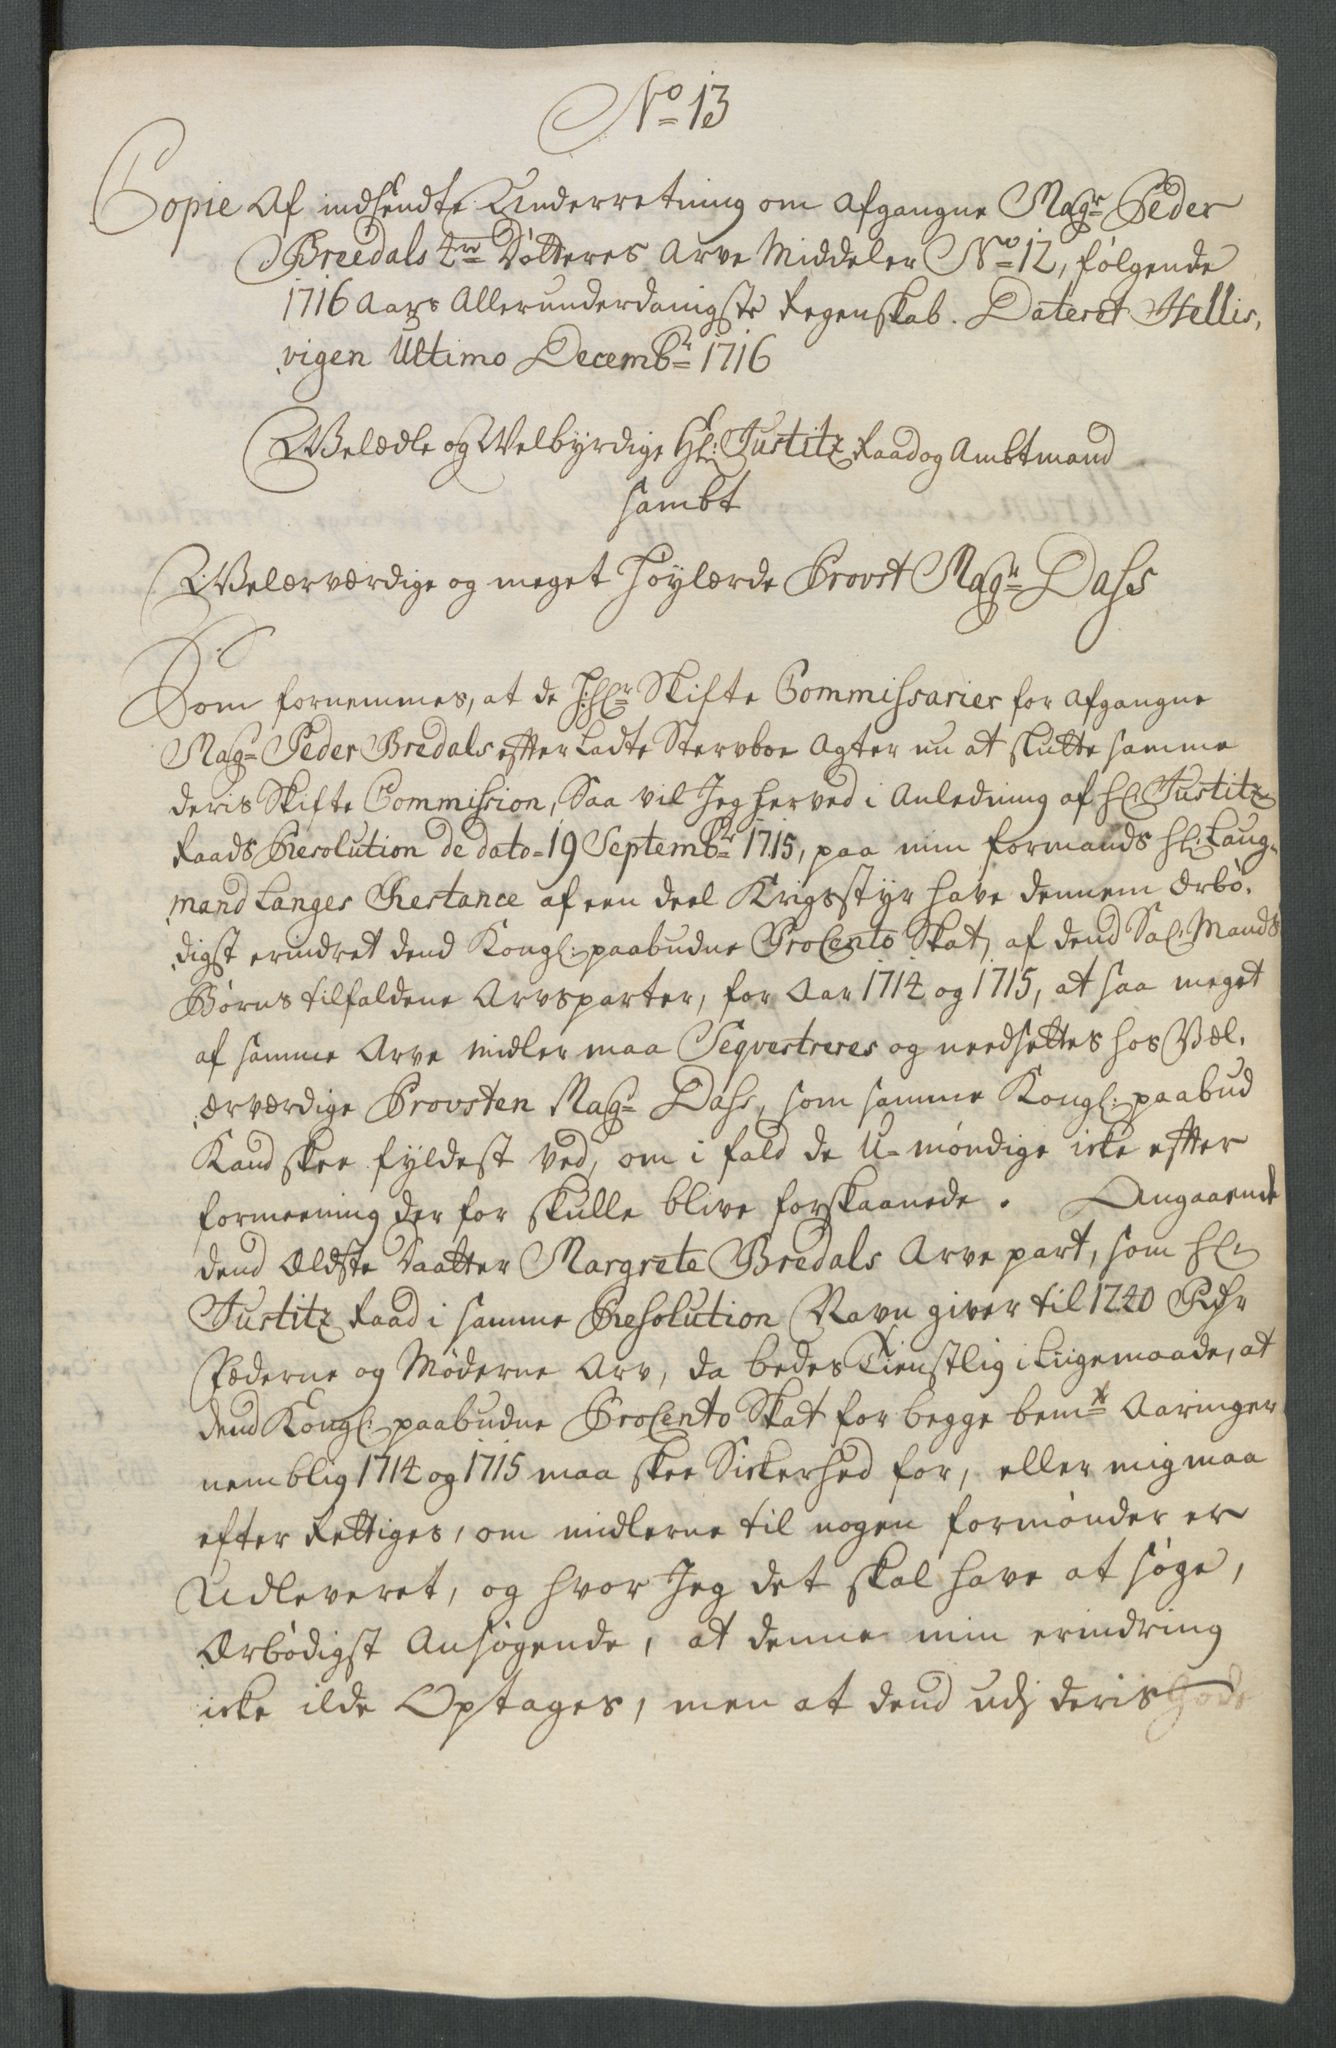 No 13
Copie Af indsendte Underretning om afgangne Magr Peder
Breedals 4re Døtteres Arve Middeler No 12, følgende
1716 Aars Allerunderdanigste Regenskab. Dateret Hellis,
vigen Ultimo Decembr 1716
Velædle og Velbyrdige Hr: Justitz Raad og Ambtmand
sambt
Velærværdige og meget Høylærde Provst Magr Dass
Som fornemmes, at de H:Hr Skifte Commissarier for afgangne
Magr Peder Bredals efterladte Stervboe Agter nu at slutte samme
deris Skifte Commission, Saa vil Jeg herved i Anledning af Hr: Justitz
Raads Resolution de dato 19 Septembr 1715, paa min formands Hr: Laug-
mand Langes Restance af een deel Krigsstyr have dennem Ærbø-
digst erindret dend Kongl: paabudne ProCento Skat, af dend Sal: Mands
Børns tilfaldene Arvsparter, for Aar 1714 og 1715, at saa meget
af samme Arve midler maa Seqvestreres og needsettes hos Vel-
ærværdige Provsten Magr Dass, som samme Kongl: paabud
Kand skee fyldest ved, om i fald de U-møndige icke efter
formeening der for skulle blive forskaanede. Angaaende
dend Ældste Daatter Margrete Bredals Arve part, som Hr:
Justitz Raad i samme Resolution Navn giver til 1240 Rdr
Fæderne og Møderne Arv, da bedes Tienstlig i Liigemaade, at
dend Kongl: paabudne ProCento Skat for begge bemte Aaringer
nemblig 1714 og 1715 maa skee Sickerhed for, eller mig maa
efter Rettiges, om midlerne til nogen formønder er
Udleveret, og hvor Jeg det skal have at søge,
Ærbødigst Ansøgende, at denne min erindring
icke ilde Optages, men at dend udj deris Gode